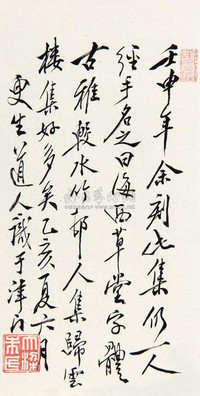 壬申年余刻此集仍一人
经手名之曰海西草堂字体
古雅较水竹邨人集归云
楼集好多矣乙亥夏六月
更生道人识于津门